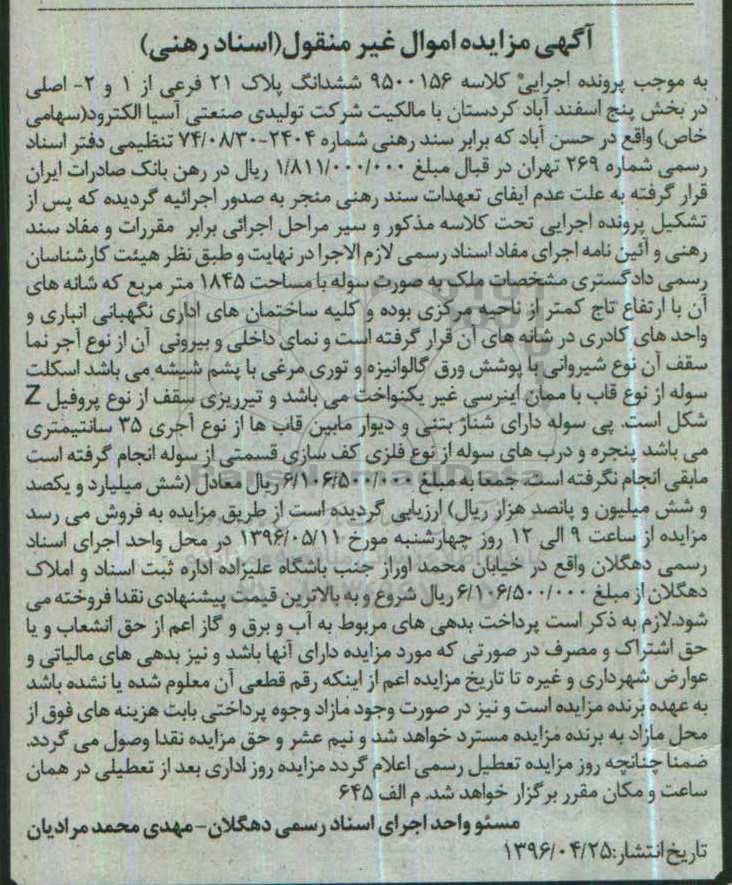 آگهی مزایده اموال غیر منقول(اسناد رهنی)
به موجب پرونده اجرایی کلاسه ۹۵۰۰۱۵۶ ششدانگ پلاک ۲۱ فرعی از ۱ و ۲- اصلی
در بخش پنج اسفند آباد کردستان با مالکیت شرکت تولیدی صنعتی آسیا الکترود(سهامی
خاص) واقع در حسن آباد که برابر سند رهنی شماره ۲۴۰۴-۷۴/۰۸/۳۰ تنظیمی دفتر اسناد
رسمی شماره ۲۶۹ تهران در قبال مبلغ ۱/۸۱۱/۰۰۰/۰۰۰ ریال در رهن بانک صادرات ایران
قرار گرفته به علت عدم ایفای تعهدات سند رهنی منجر به صدور اجرائیه گردیده که پس از
تشکیل پرونده اجرایی تحت کلاسه مذکور و سیر مراحل اجرائی برابر مقررات و مفاد سند
رهنی و آئین نامه اجرای مفاد اسناد رسمی لازم الاجرا در نهایت و طبق نظر هیئت کارشناسان
رسمی دادگستری مشخصات ملک به صورت سوله با مساحت ۱۸۴۵ متر مربع که شانه های
آن با ارتفاع تاج کمتر از ناحیه مرکزی بوده و کلیه ساختمان های اداری نگهبانی انباری و
واحد های کادری در شانه های آن قرار گرفته است و نمای داخلی و بیرونی آن از نوع آجر نما
سقف آن نوع شیروانی با پوشش ورق گالوانیزه و توری مرغی با پشم شیشه می باشد اسکلت
سوله از نوع قاب با ممان اینرسی غیر یکنواخت می باشد و تیرریزی سقف از نوع پروفیل Z
شکل است. پی سوله دارای شناژ بتنی و دیوار مابین قاب ها از نوع آجری ۳۵ سانتیمتری
می باشد پنجره و درب های سوله از نوع فلزی کف سازی قسمتی از سوله انجام گرفته است
مابقی انجام نگرفته است. جمعا به مبلغ ۶/۱۰۶/۵۰۰/۰۰۰ ریال معادل (شش میلیارد و یکصد
و شش میلیون و پانصد هزار ریال) ارزیابی گردیده است از طریق مزایده به فروش می رسد
مزایده از ساعت ۹ الی ۱۲ روز چهارشنبه مورخ ۱۳۹۶/۰۵/۱۱ در محل واحد اجرای اسناد
رسمی دهگلان واقع در خیابان محمد اوراز جنب باشگاه علیزاده اداره ثبت اسناد و املاک
دهگلان از مبلغ ۶/۱۰۶/۵۰۰/۰۰۰ ریال شروع و به بالاترین قیمت پیشنهادی نقدا فروخته می
شود.لازم به ذکر است پرداخت بدهی های مربوط به آب و برق و گاز اعم از حق انشعاب و یا
حق اشتراک و مصرف در صورتی که مورد مزایده دارای آنها باشد و نیز بدهی های مالیاتی و
عوارض شهرداری و غیره تا تاریخ مزایده اعم از اینکه رقم قطعی آن معلوم شده یا نشده باشد
به عهده برنده مزایده است و نیز در صورت وجود مازاد وجوه پرداختی بابت هزینه های فوق از
محل مازاد به برنده مزایده مسترد خواهد شد و نیم عشر و حق مزایده نقدا وصول می گردد.
ضمنا چنانچه روز مزایده تعطیل رسمی اعلام گردد مزایده روز اداری بعد از تعطیلی در همان
ساعت و مکان مقرر برگزار خواهد شد. م الف ۶۴۵
مسئو واحد اجرای اسناد رسمی دهگلان- مهدی محمد مرادیان
تاریخ انتشار:۱۳۹۶/۰۴/۲۵